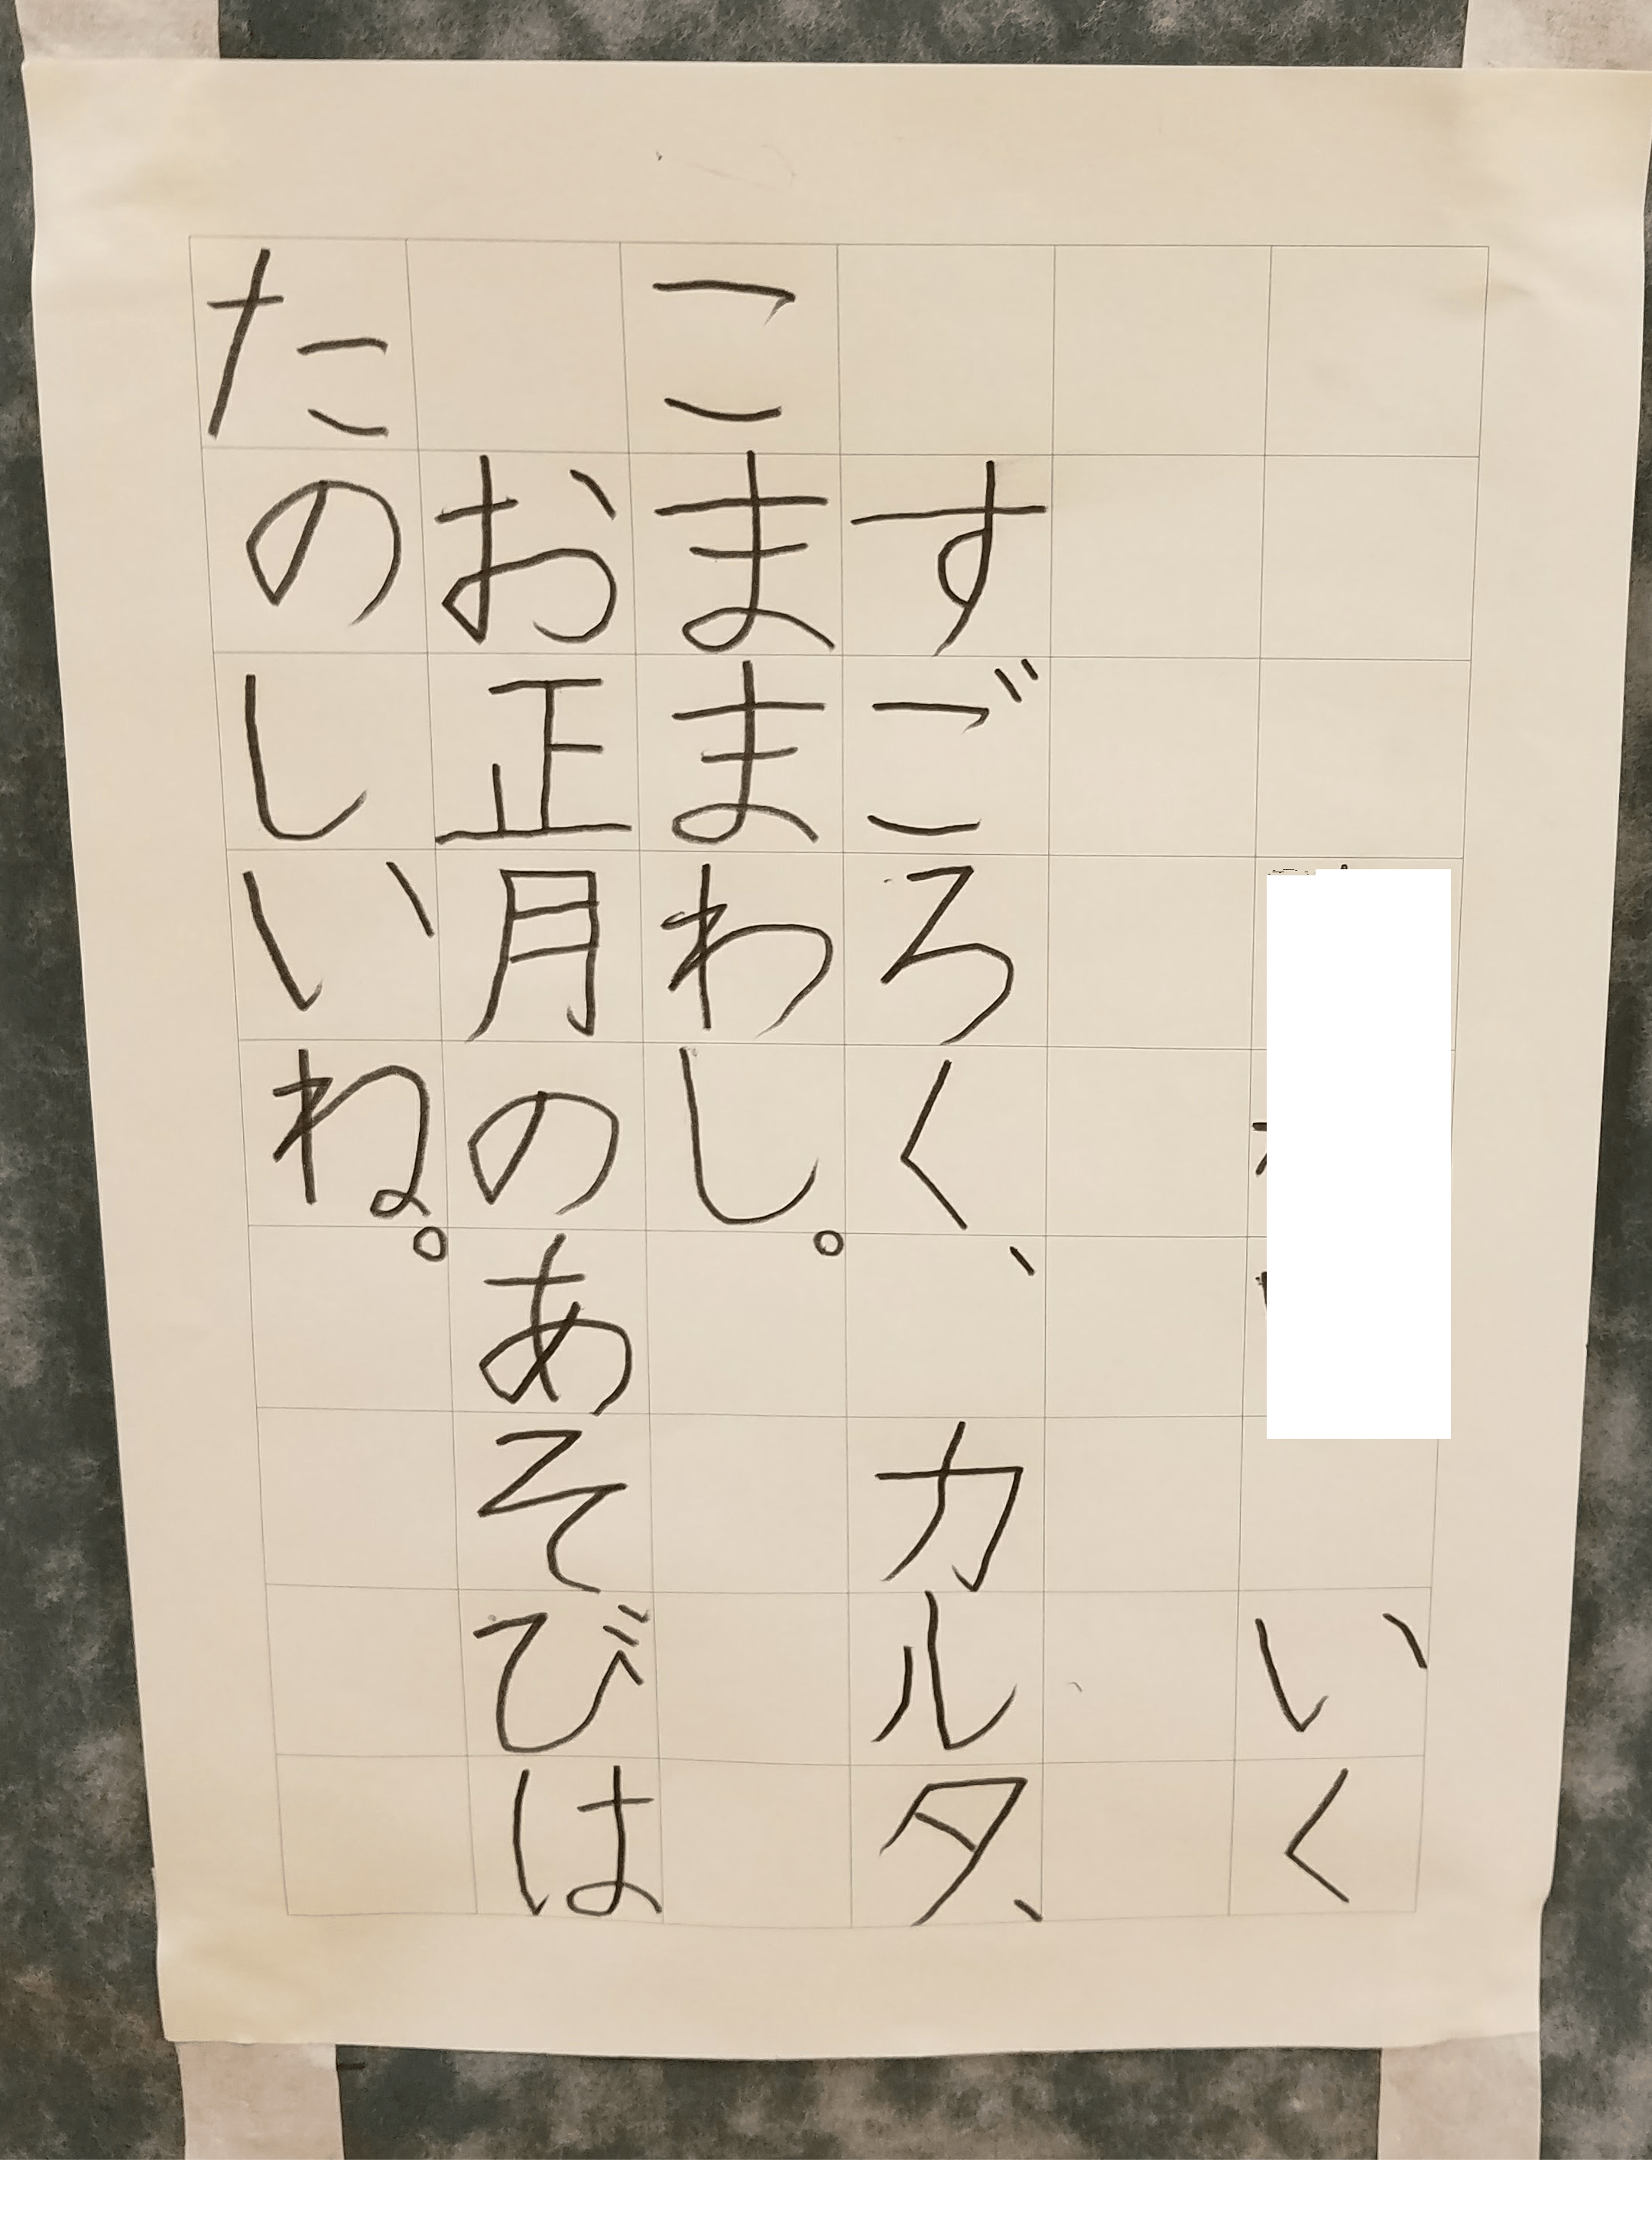 いく
すごろく、カルタ、
こままわし。
お正月のあそびは
たのしいね。